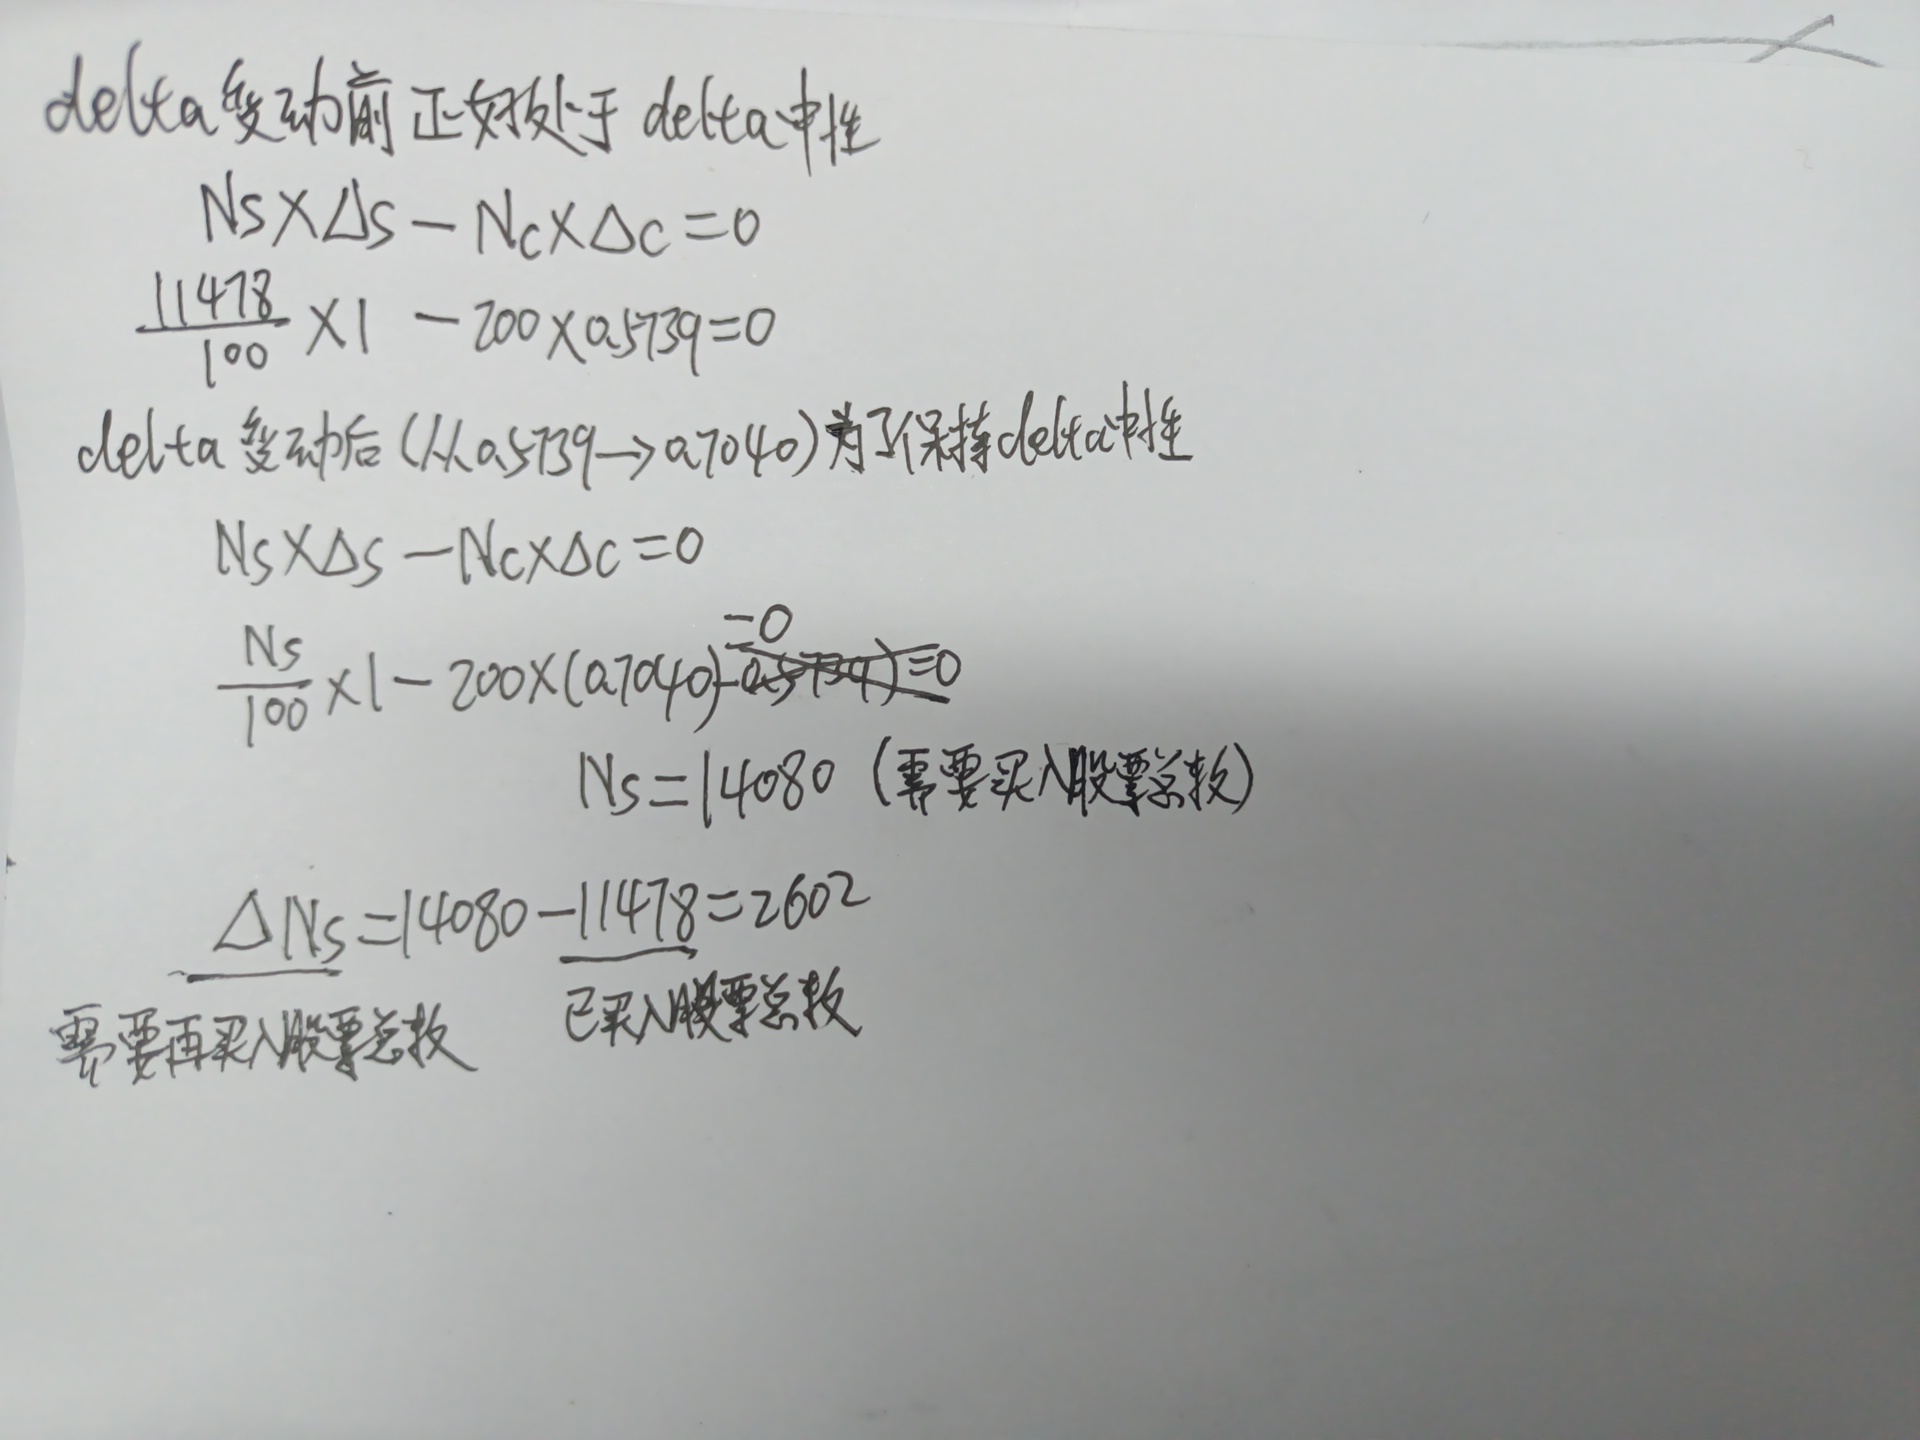 delta变动前正好处于delta中性
Ns×Δs-Nc×Δc=0
11478/100×1-200×0.5739=0
delta变动后(从0.5739→0.7040)为了保持delta中性
Ns×Δs-Nc×Δc=0
=0
Ns/100×1-200×(0.7040)-0.5739)=0
Ns=14080(需要买入股票总数)
ΔNs=14080-11478=2602
需要再买入股票总数 已买入股票总数